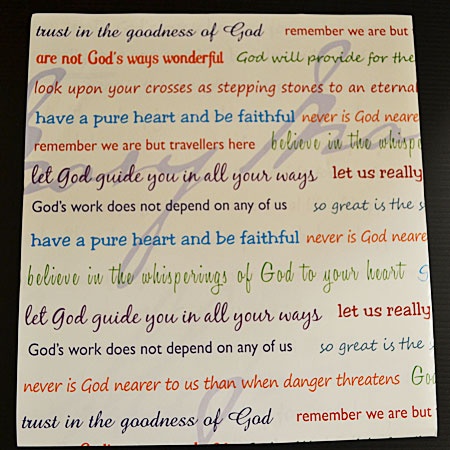 trust in the goodness of God remember we are but
are not God's ways wonderful God will provide for the
look upon your crosses as stepping stones to an eterna
have a pure heart and be faithful never is God neare
remember we are but travellers here believe in the whispe
let God guide you in all your ways let us really
God's work does not depend on any of us so great is the s
have a pure heart and be faithful never is God neare
believe in the whisperings of God to your heart
let God guide you in all your ways let us really
God's work does not depend on any of us so great is the
never is God nearer to us than when danger threatens Go
trust in the goodness of God remember we are but